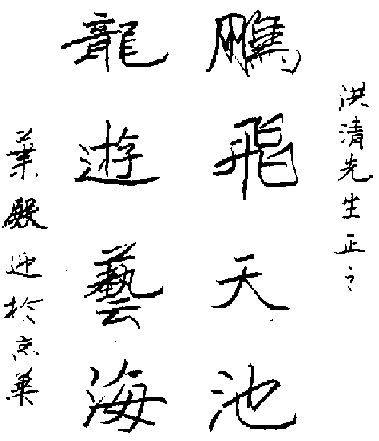 洪清先生正之
鵬飛天池
龍遊藝海
葉殿迎於京華